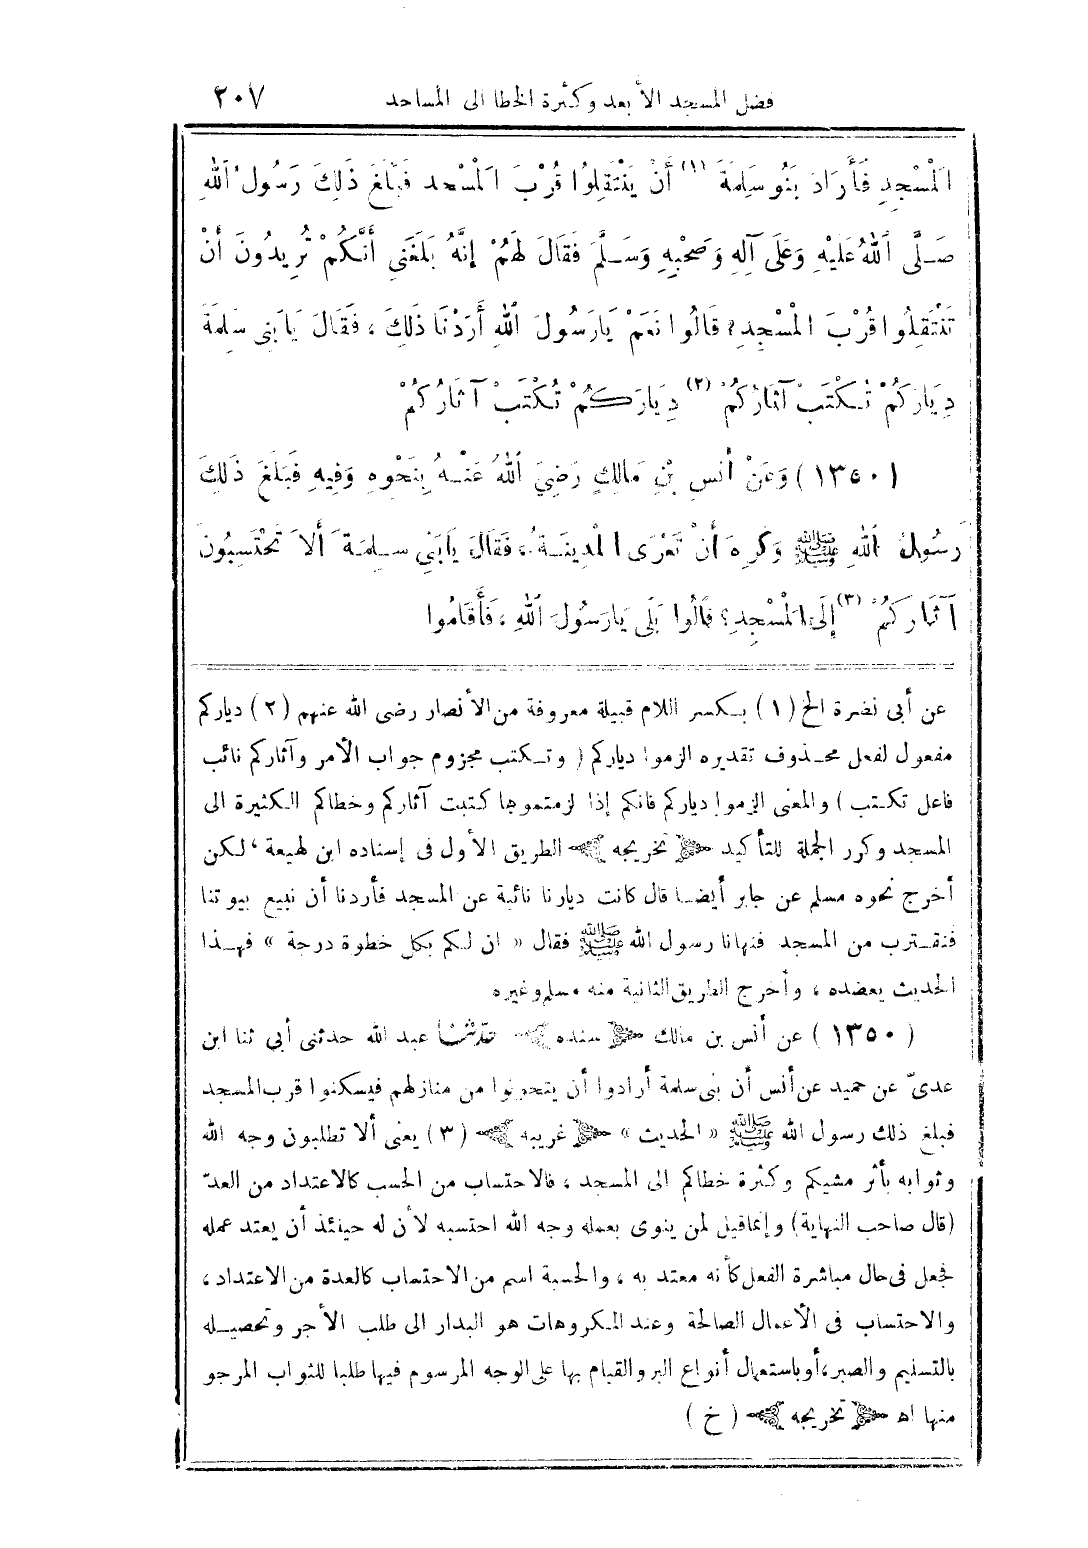 فضل المسجد الأبعد وكثرة الخطا الى المساجد ٢٠٧
الْمَسْجِدِ فَأَرَادَ بَنُو سَلِمَةَ (١) أَنْ يَنْتَقِلُوا قُرْبَ الْمَسْجِدِ فَبَلَغَ ذَلِكَ رَسُولَ اللهِ
صَلَّى اللهُ عَلَيْهِ وَعَلَى آلِهِ وَصَحْبِهِ وَسَلَّمَ فَقَالَ لَهُمْ إِنَّهُ بَلَغَنِي أَنَّكُمْ تُرِيدُونَ أَنْ
تَنْتَقِلُوا قُرْبَ الْمَسْجِدِ؟ قَالُوا نَعَمْ يَارَسُولَ اللهِ أَرَدْنَا ذَلِكَ، فَقَالَ يَا بَنِي سَلِمَةَ
دِيَارَكُمْ تُكْتَبْ آثَارُكُمْ (٢) دِيَارَكُمْ تُكْتَبْ آثَارُكُمْ
(١٣٥٠) وَعَنْ أَنَسِ بْنِ مَالِكٍ رَضِيَ اللهُ عَنْهُ بِنَحْوِهِ وَفِيهِ فَبَلَغَ ذَلِكَ
رَسُولَ اللهِ ﷺ وَكَرِهَ أَنْ تَعْرَى الْمَدِينَةُ، فَقَالَ يَا بَنِي سَلِمَةَ أَلَا تَحْتَسِبُونَ
آثَارَكُمْ (٣) إِلَى الْمَسْجِدِ؟ قَالُوا بَلَى يَارَسُولَ اللهِ، فَأَقَامُوا
عن أبى نضرة الخ (١) بكسر اللام قبيلة معروفة من الأنصار رضى الله عنهم (٢) دياركم
مفعول لفعل محذوف تقديره الزموا دياركم (وتكتب مجزوم جواب الأمر وآثاركم نائب
فاعل تكتب) والمعنى الزموا دياركم فانكم إذا لزمتموها كتبت آثاركم وخطاكم الكثيرة الى
المسجد وكرر الجملة للتأكيد ﴿تخريجه﴾ الطريق الأول فى إسناده ابن لهيعة، لكن
أخرج نحوه مسلم عن جابر أيضا قال كانت ديارنا نائية عن المسجد فأردنا أن نبيع بيوتنا
فنقترب من المسجد فنهانا رسول الله ﷺ فقال « ان لكم بكل خطوة درجة » فهذا
الحديث يعضده، وأخرج الطريق الثانية منه مسلم وغيره
(١٣٥٠) عن أنس بن مالك ﴿سنده﴾ حدثنا عبد الله حدثنى أبى ثنا ابن
عدىّ عن حميد عن أنس أن بنى سلمة أرادوا أن يتحولوا من منازلهم فيسكنوا قرب المسجد
فبلغ ذلك رسول الله ﷺ « الحديث » ﴿غريبه﴾ (٣) يعنى ألا تطلبون وجه الله
وثوابه بأثر مشيكم وكثرة خطاكم الى المسجد، فالاحتساب من الحسب كالاعتداد من العدّ
(قال صاحب النهاية) وإنما قيل لمن ينوى بعمله وجه الله احتسبه لأن له حينئذ أن يعتد عمله
فجعل فى حال مباشرة الفعل كأنه معتد به، والحسبة اسم من الاحتساب كالعدة من الاعتداد،
والاحتساب فى الأعمال الصالحة وعند المكروهات هو البدار الى طلب الأجر وتحصيله
بالتسليم والصبر، أو باستعمال أنواع البر والقيام بها على الوجه المرسوم فيها طلبا للثواب المرجو
منها اه ﴿تخريجه﴾ (خ)